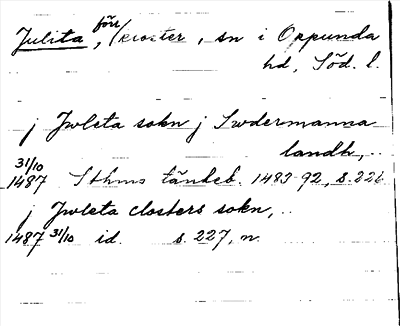 Julita, förr kloster, sn i Oppunda
hd, Söd. l.
j Jwleta sokn j Swdermanna
landh,..
31/10
1487 Sthms tänkeb. 1483-92, s. 226
j Jwleta closters sokn,..
1487 31/10 id. s. 227, n.